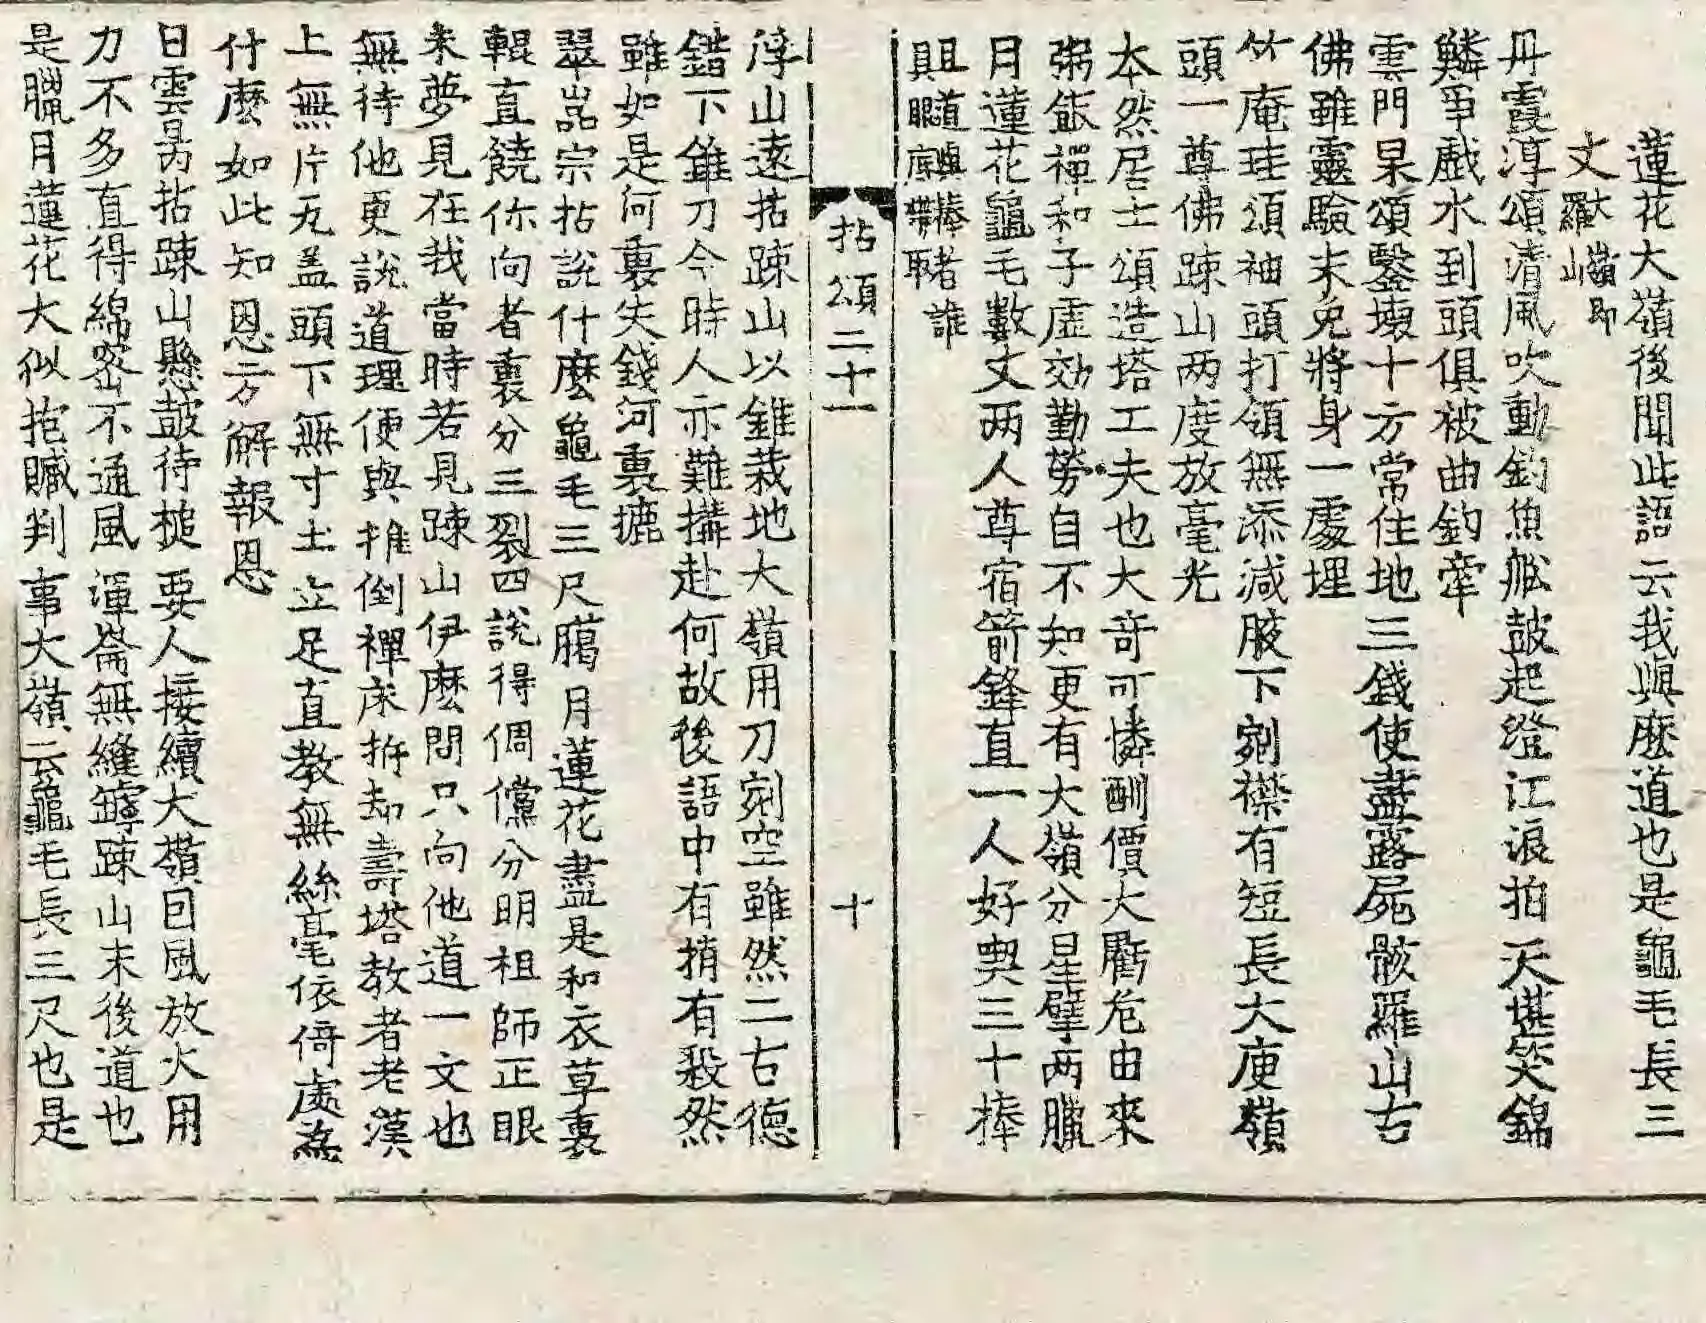 蓮花大嶺後聞此語云我與麽道也是龜毛長三
丈大嶺即羅山
丹霞淳頌清風吹動釣魚舩皷起澄江浪拍天堪笑錦
鱗爭戱水到頭俱被曲釣牽
雲門杲頌鑿壞十方常住地三錢使盡露屍骸羅山古
佛雖靈驗未免將身一處埋
竹庵珪頌袖頭打領無添減腋下剜襟有短長大庾嶺
頭一尊佛踈山兩度放毫光
本然居士頌造塔工夫也大竒可憐酬價大𧇾危由來
粥飯禪和子虛効勤勞自不知更有大嶺分星擘兩臘
月蓮花龜毛數丈兩人尊宿箭鋒直一人好喫三十棒
且道與棒者誰
具眼底辯取
拈頌二十一
十
浮山遠拈踈山以錐栽地大嶺用刀剜空雖然二古德
錯下錐刀今時人亦難搆赴何故後語中有捎有殺然
雖如是何裏失錢河裏摝
翠嵓宗拈說什麽龜毛三尺臈月蓮花盡是和衣草裏
輥直饒你向者裏分三裂四說得倜儻分明祖師正眼
未夢見在我當時若見踈山伊麽問只向他道一文也
無待他更說道理便與推倒禪床拆却壽塔教者老漢
上無片瓦盖頭下無寸土立足直教無絲毫依倚處爲
什麽如此知恩方解報恩
日雲昺拈踈山懸皷待槌要人接續大嶺因風放火用
力不多直得綿密不通風渾崙無縫罅踈山末後道也
是臘月蓮花大似抱贓判事大嶺云龜毛長三尺也是